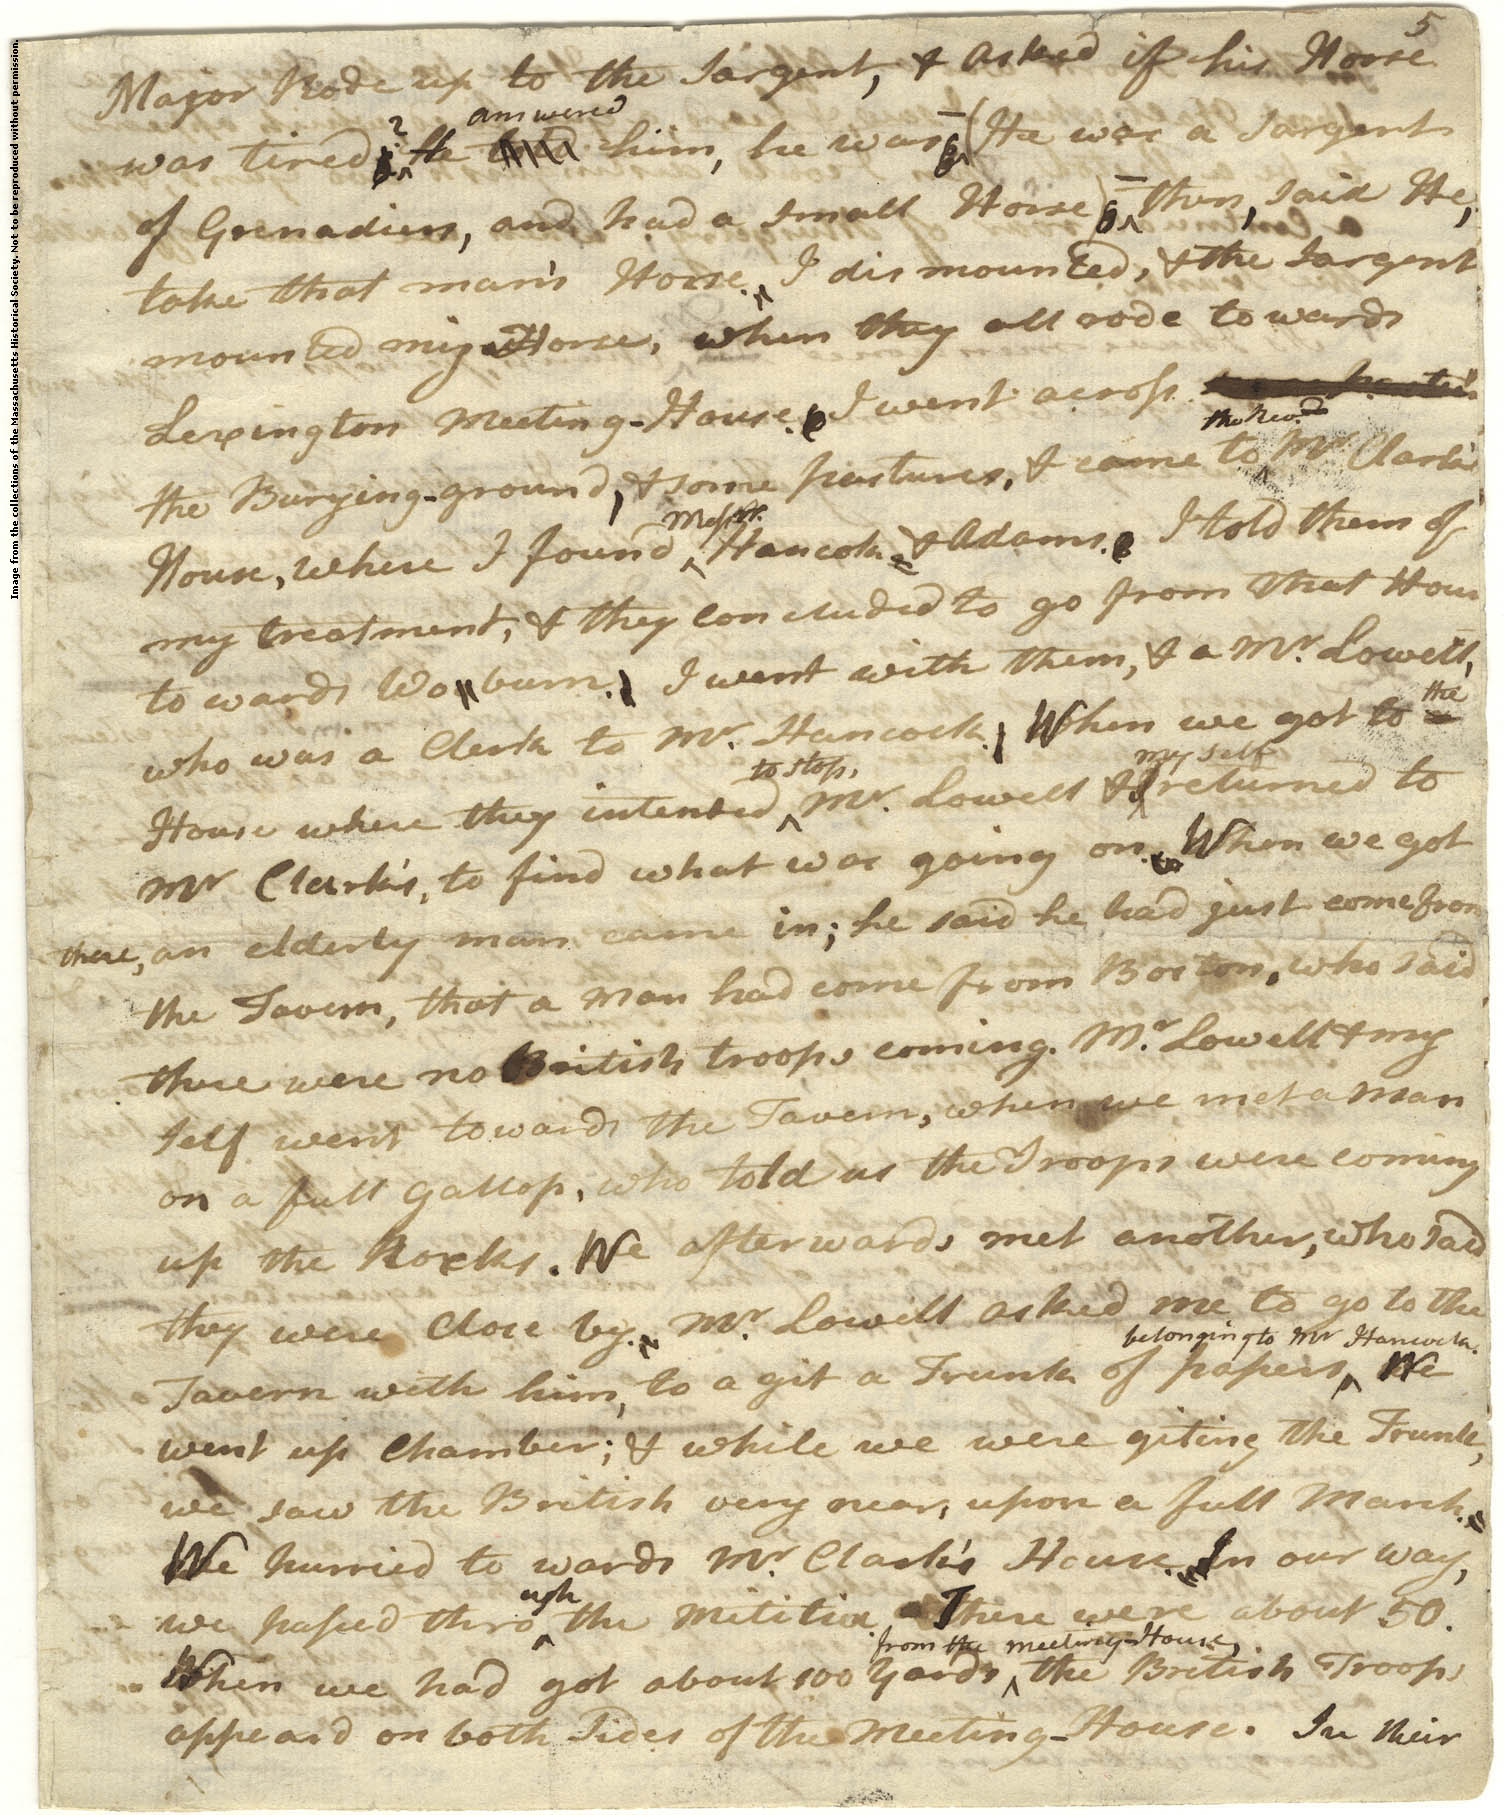 Image from the collections of the Massachusetts Historical Society. Not to be reproduced without permission.
5
Major Rode up to the Sargent, & asked if his Horse
answered
was tired? He him, he was – (He was a Sargent
of Grenadiers, and had a small Horse) – then, said He,
take that man's Horse. I dismounted, & the Sargent
mounted my Horse, when they all rode towards
Lexington Meeting-House. I went across
the Revd
the Burying-ground, & some pastures, & came to Mr. Clark's
Messrs.
House, where I found Hancok & Adams. I told them of
my treatment, & they concluded to go from that House
to wards Woburn. I went with them, & a Mr. Lowell,
the
who was a Clerk to Mr. Hancock. When we got to
to stop, my self
House where they intended Mr. Lowell & I returned to
Mr Clark's, to find what was going on. When we got
there, an elderly man came in; he said he had just come from
the Tavern, that a Man had come from Boston, who said
there were no British troops coming. Mr. Lowell & my
self went towards the Tavern, when we met a Man
on a full gallop, who told us the Troops were coming
up the Rocks. We afterwards met another, who said
they were Close by. Mr. Lowell asked me to go to the
belonging to Mr Hancock.
Tavern with him, to a git a Trunk of papers We
went up Chamber; & while we were giting the Trunk,
we saw the British very near, upon a full March.
We hurried to wards Mr. Clark's House. In our way,
ugh
we passed thro the Militia. There were about 50.
from the meeting-House,
When we had got about 100 Yards the British Troops
appeard on both Sides of the Meeting-House. In their